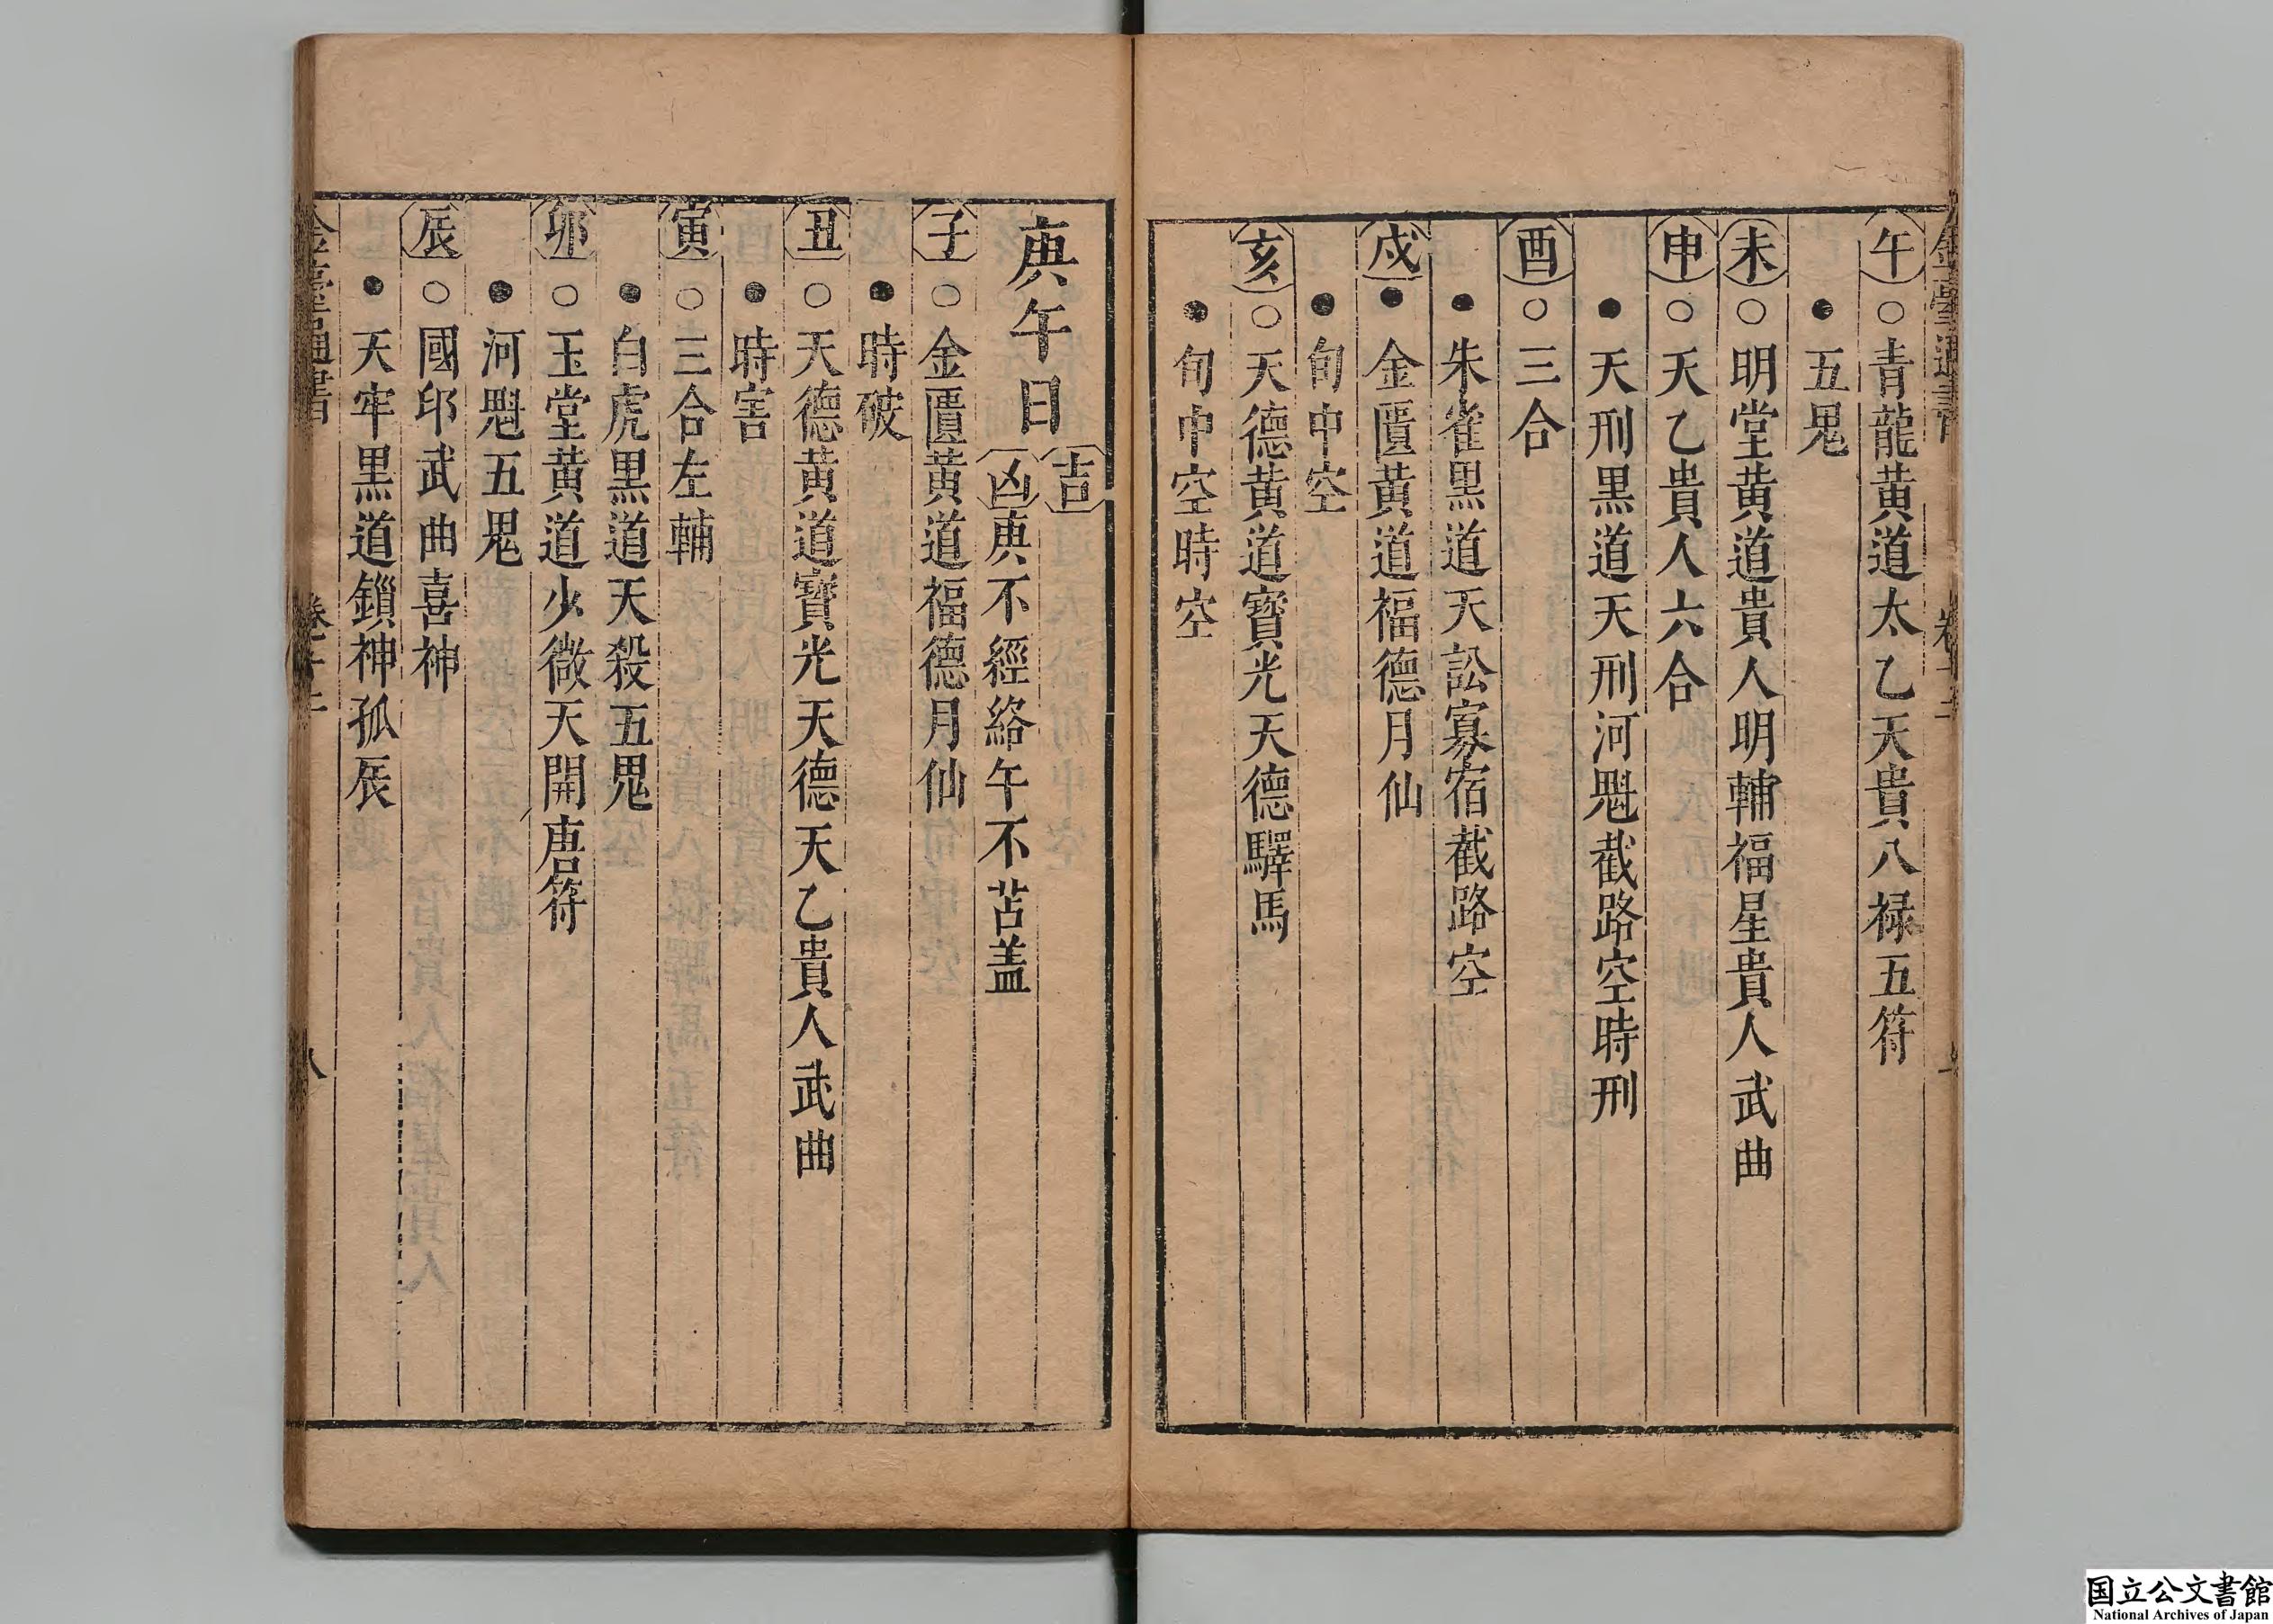 午○青龍黄道太乙天貴八禄五符
●五鬼
未○明堂黄道貴人明輔福星貴人武曲
申○天乙貴人六合
●天刑黒道天刑河魁截路空時刑
酉○三合
●朱雀黒道天訟寡宿截路空
戌●金匱黄道福德月仙
●旬中空
亥○天德黄道寶光天德驛馬
●旬中空時空
庚午日
吉
凶庚不經絡午不苫盖
子○金匱黄道福德月仙
●時破
丑○天德黄道寶光天德天乙貴人武曲
●時害
寅○三合左輔
●白虎黒道天殺五鬼
卯○玉堂黄道少微天開唐符
●河魁五鬼
辰○國印武曲喜神
●天牢黒道鎖神孤辰
金臺通書 八
国立公文書館
National Archives of Japan